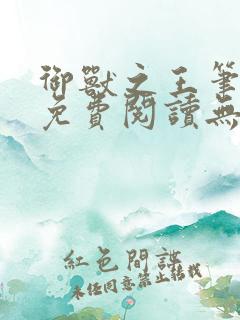 御獸之王筆
免費閱讀無
紅色間諜
未經同意禁止轉載